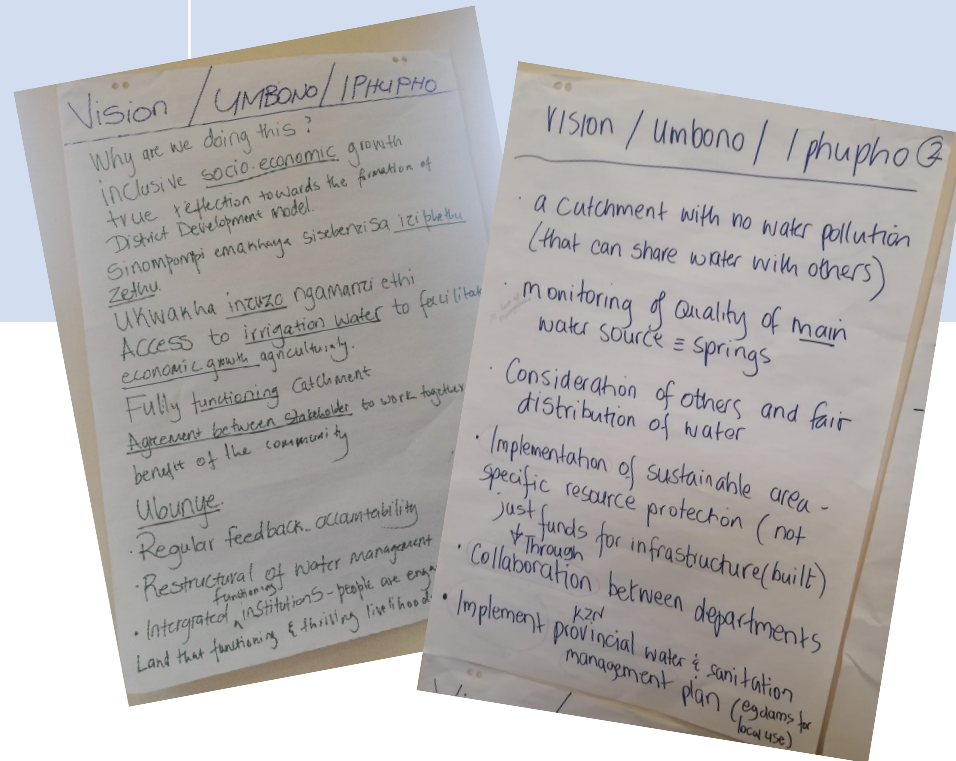 Vision / UMBONO / IPHUPHO
Why are we doing this?
inclusive socio-economic growth
true reflection towards the formation of
District Development model.
Sinompompi emakhaya sisebenzisa iziphethu
Zethu.
Ukwakha inzuzo ngamanzi ethi
Access to irrigation water to facilitat
economic growth agriculturaly.
Fully functioning Catchment
Agreement between stakeholder to work together
benefit of the community
Ubunye.
· Regular feedback - accountability
· Restructural of water management
functioning
· Intergrated institutions - people are enga
Land that functioning & thriving livelihood
Vision / Umbono / Iphupho 2
· a catchment with no water pollution
(that can share water with others)
· monitoring of Quality of main
water source ≡ springs
· Consideration of others and fair
distribution of water
· Implementation of sustainable area -
specific resource protection (not
just funds for infrastructure (built)
↓ Through
· Collaboration between departments
KZN
· Implement provincial water & sanitation
management plan (eg dams for
local use)